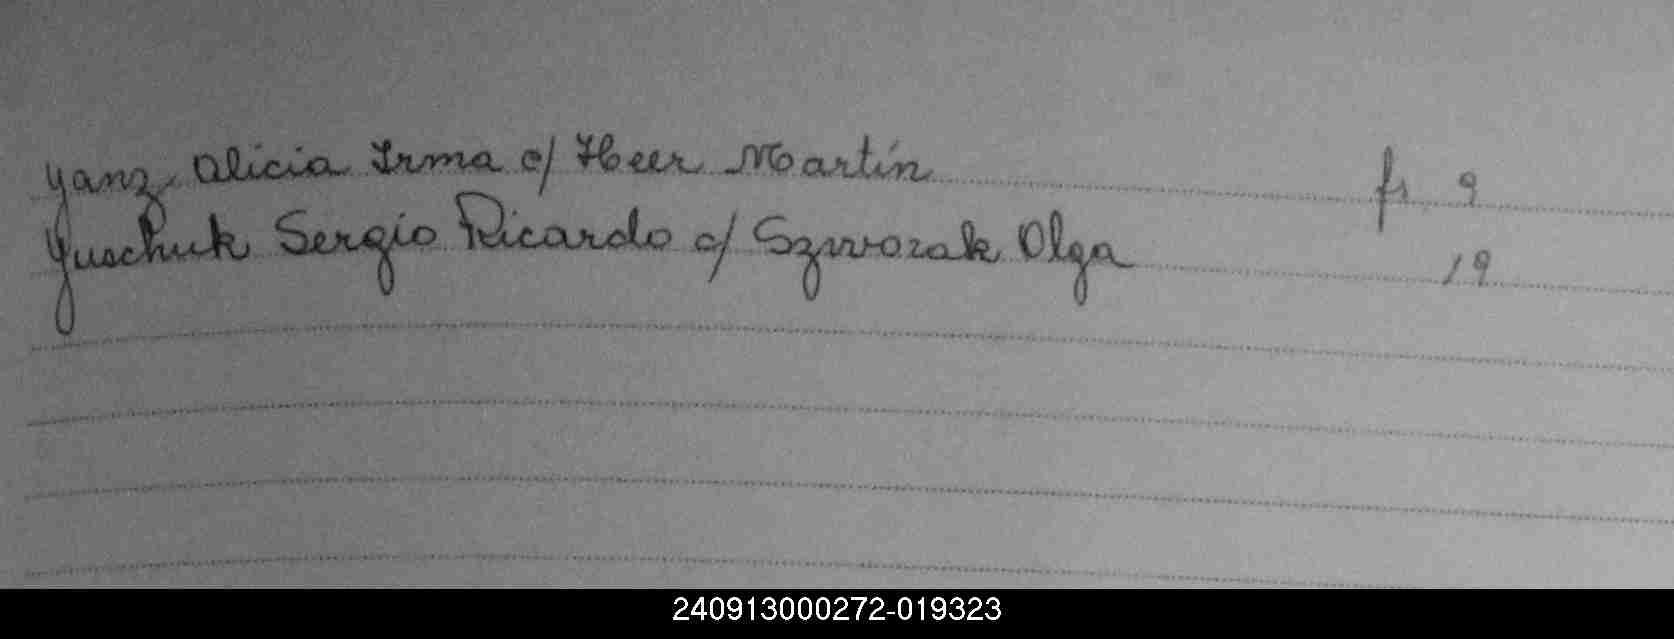 Yanz Alicia Irma c/ Heer Martín fs 9
Yuschuk Sergio Ricardo c/ Szworak Olga 19
240913000272-019323